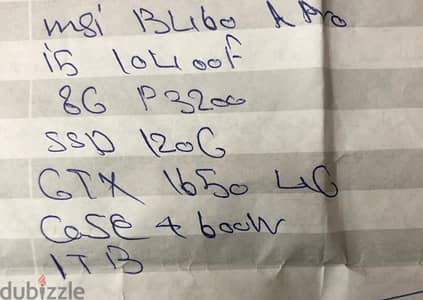 msi B460 A Pro
i5 10400f
8G P3200
SSD 120G
GTX 1650 4G
CaSE + 600W
1TB
dubizzle